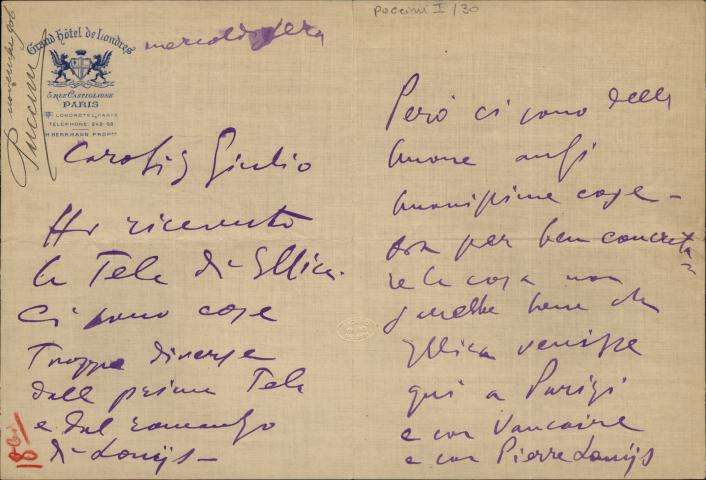 Puccini I/30
novembre 906
Puccini
Grand Hôtel de Londres
5 RUE CASTIGLIONE
PARIS
LONDROTEL, PARIS
TELEPHONE: 242-68
H. HERRMANN PROPRE
mercoledì sera
Caro Sig Giulio
Ho ricevuto
la Tela di Illica.
Ci sono cose
Troppo diverse
dalla prima Tela
e dal romanzo
di Louÿs —
Però ci sono delle
buone anzi
buonissime cose —
Ora per ben concreta
re la cosa non
sarebbe bene che
Illica venisse
qui a Parigi
e con Vaucaire
e con Pierre Louÿs
18